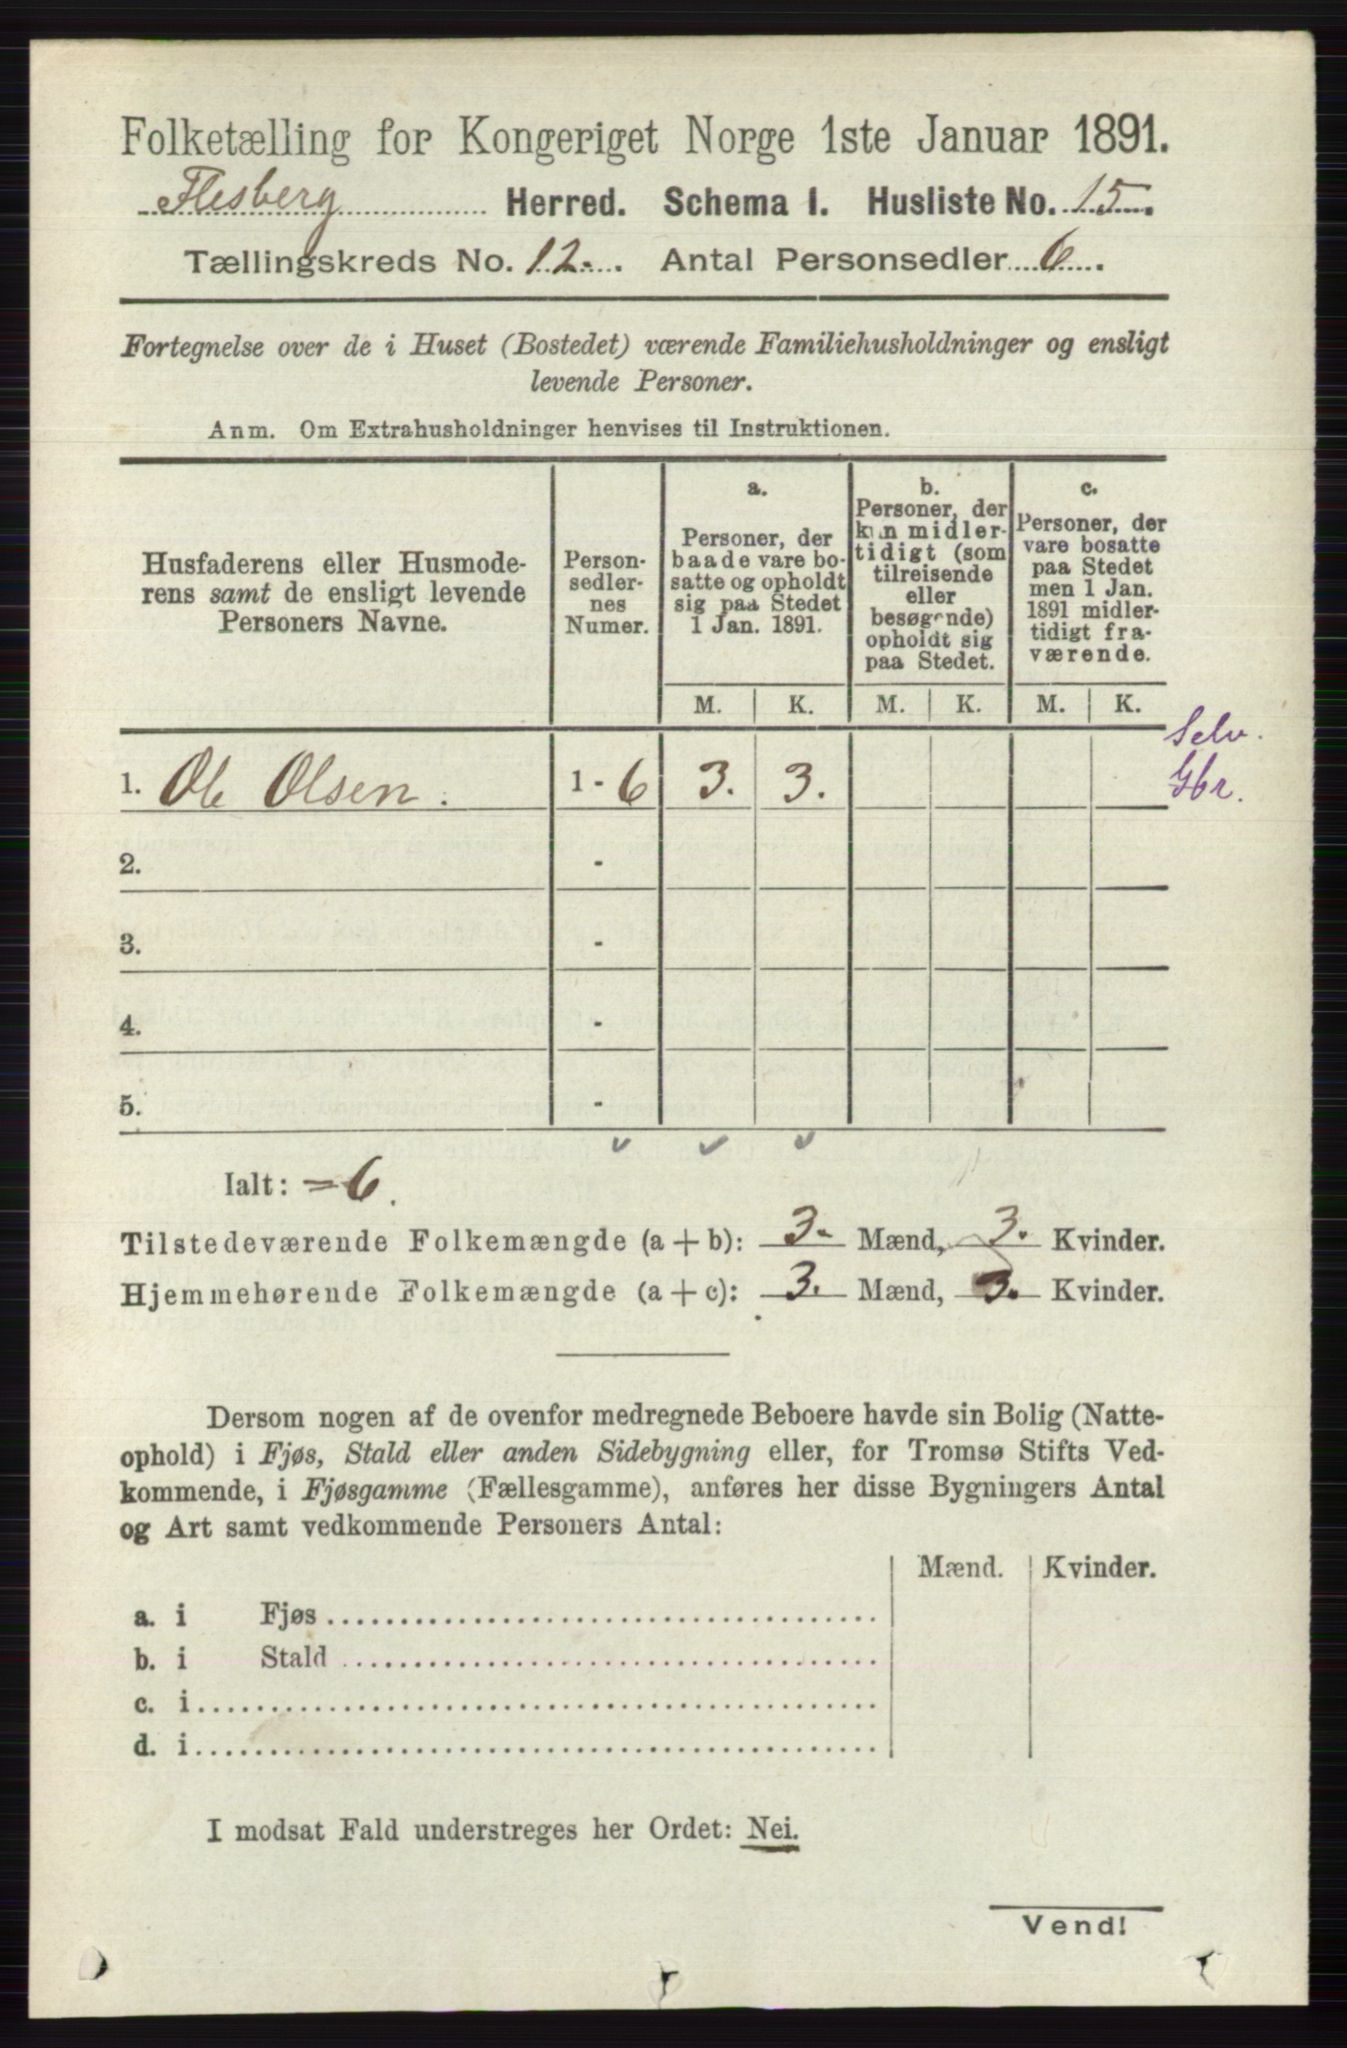 Folketælling for Kongeriget Norge 1ste Januar 1891.
Flesberg Herred. Schema I. Husliste No. 15.
Tællingskreds No. 12. Antal Personsedler 6.
Fortegnelse over de i Huset (Bostedet) værende Familiehusholdninger og ensligt
levende Personer.
Anm. Om Extrahusholdninger henvises til Instruktionen.
Husfaderens eller Husmode-
rens samt de ensligt levende
Personers Navne.
Person-
sedler-
nes
Numer.
a.
Personer, der
baade vare bo-
satte og opholdt
sig paa Stedet
1 Jan. 1891.
b.
Personer, der
kun midler-
tidigt (som
tilreisende
eller
besøgende)
opholdt sig
paa Stedet.
c.
Personer, der
vare bosatte
paa Stedet
men 1 Jan.
1891 midler-
tidigt fra-
værende.
M. K. M. K. M. K.
1. Ole Olsen. 1 - 6 3. 3. Selv.
Gbr.
2. -
3. -
4. -
5. -
Ialt: = 6.
Tilstedeværende Folkemængde (a + b): 3. Mænd, 3. Kvinder.
Hjemmehørende Folkemængde (a + c): 3. Mænd, 3. Kvinder.
Dersom nogen af de ovenfor medregnede Beboere havde sin Bolig (Natte-
ophold) i Fjøs, Stald eller anden Sidebygning eller, for Tromsø Stifts Ved-
kommende, i Fjøsgamme (Fællesgamme), anføres her disse Bygningers Antal
og Art samt vedkommende Personers Antal:
Mænd. Kvinder.
a. i Fjøs
b. i Stald
c. i
d. i
I modsat Fald understreges her Ordet: Nei.
Vend!